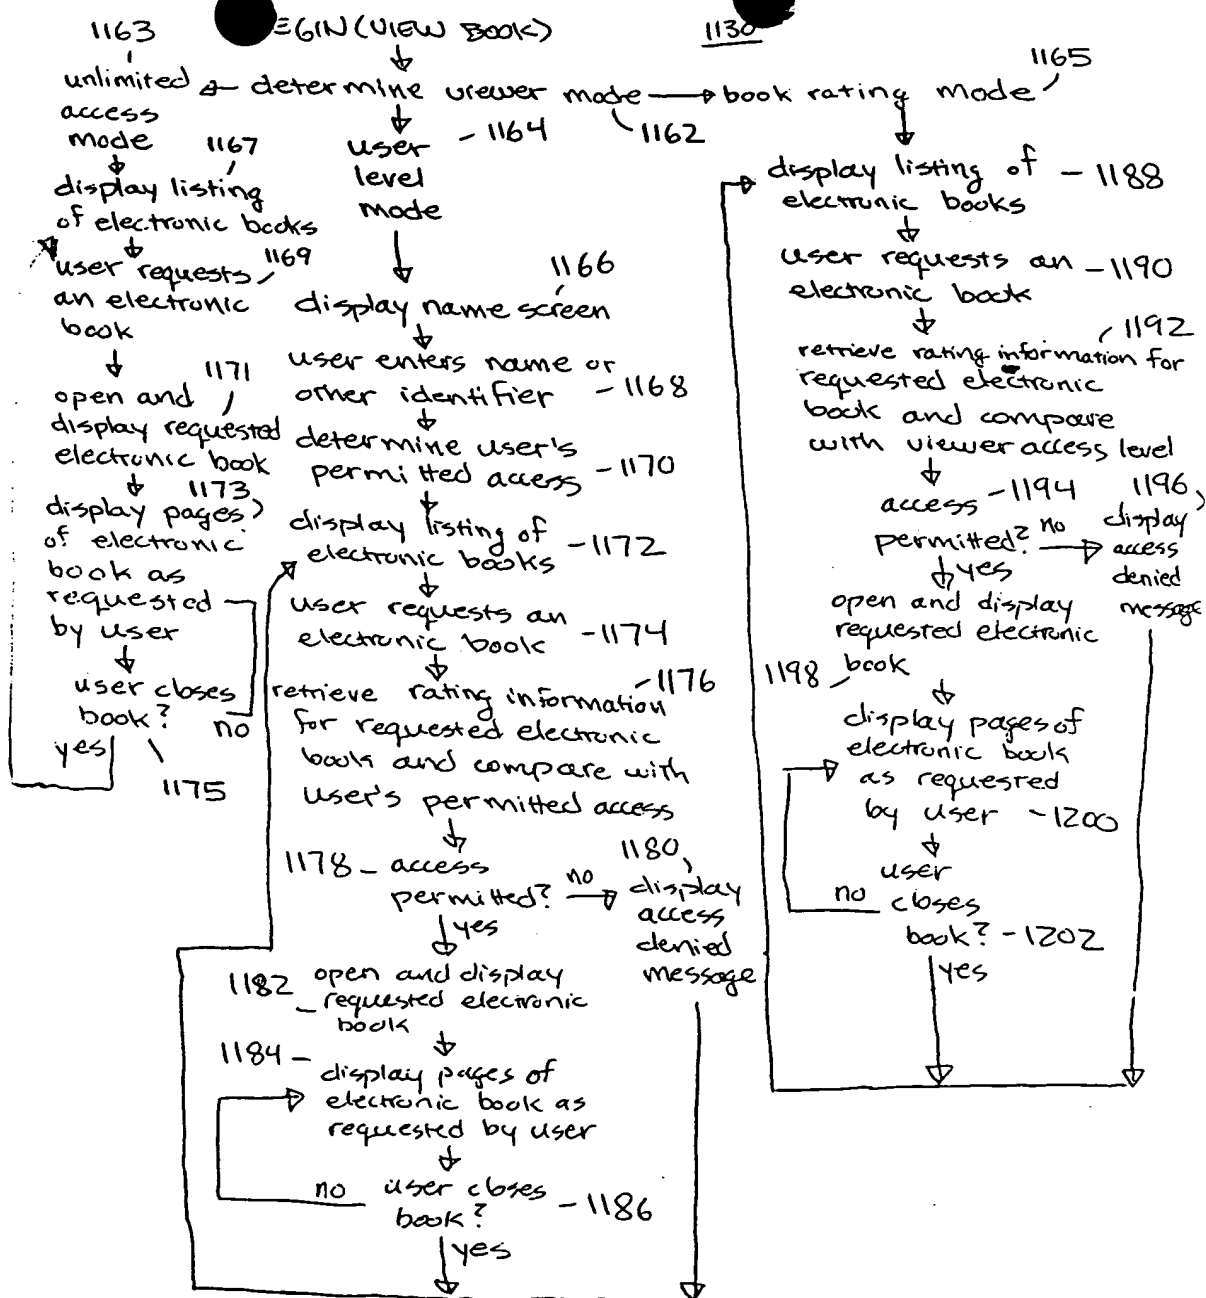 1163
EGIN (VIEW BOOK)
1130
unlimited
access
mode
determine viewer mode
1162
book rating mode
1165
1167
display listing
of electronic books
user requests
an electronic
book
1169
1171
open and
display requested
electronic book
1173
display pages
of electronic
book as
requested
by user
user closes
book?
no
yes
1175
user
level
mode
1164
1166
display name screen
user enters name or
other identifier - 1168
determine user's
permitted access - 1170
display listing of
electronic books - 1172
user requests an
electronic book - 1174
retrieve rating information - 1176
for requested electronic
book and compare with
user's permitted access
1178 - access
permitted?
no
yes
1180
display
access
denied
message
1182
open and display
requested electronic
book
1184 -
display pages of
electronic book as
requested by user
no
user closes
book?
- 1186
yes
display listing of - 1188
electronic books
user requests an - 1190
electronic book
1192
retrieve rating information for
requested electronic
book and compare
with viewer access level
access - 1194
permitted?
no
yes
1196
display
access
denied
message
open and display
requested electronic
1198 book
display pages of
electronic book
as requested
by user - 1200
user
no closes
book? - 1202
yes